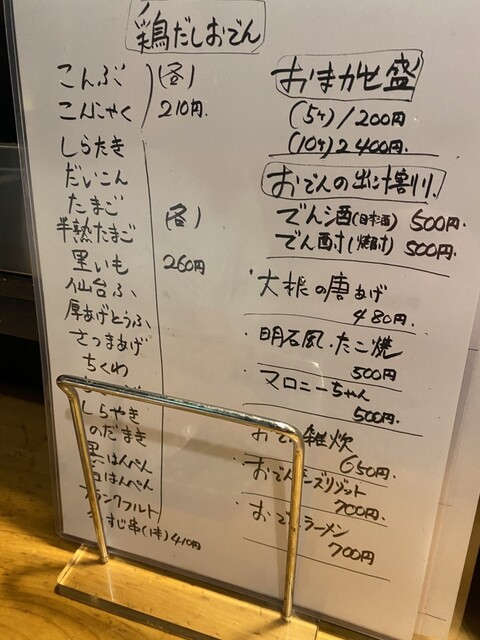 鶏だしおでん
こんぶ
こんにゃく
(各)
210円.
しらたき
だいこん
たまご
半熟たまご
里いも
仙台ふ
厚あげとうふ
さつまあげ
ちくわ
しらやき
のだまき
黒はんぺん
はんぺん
フランクフルト
すじ串(1本)410円
(各)
260円
おまかせ盛
(5ヶ)1200円
(10ヶ)2400円.
おでんの出汁割り.
でん酒(日本酒)500円.
でん酎(焼酎)500円.
・大根の唐あげ
480円.
・明石風.たこ焼
500円
・マロニーちゃん
500円.
・おでん雑炊
650円.
・おでんチーズリゾット
700円.
・おでんラーメン
700円